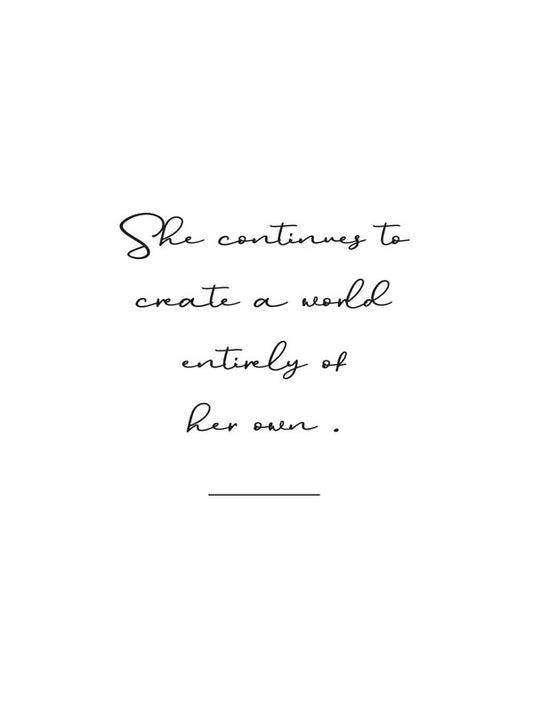 She continues to
create a world
entirely of
her own .